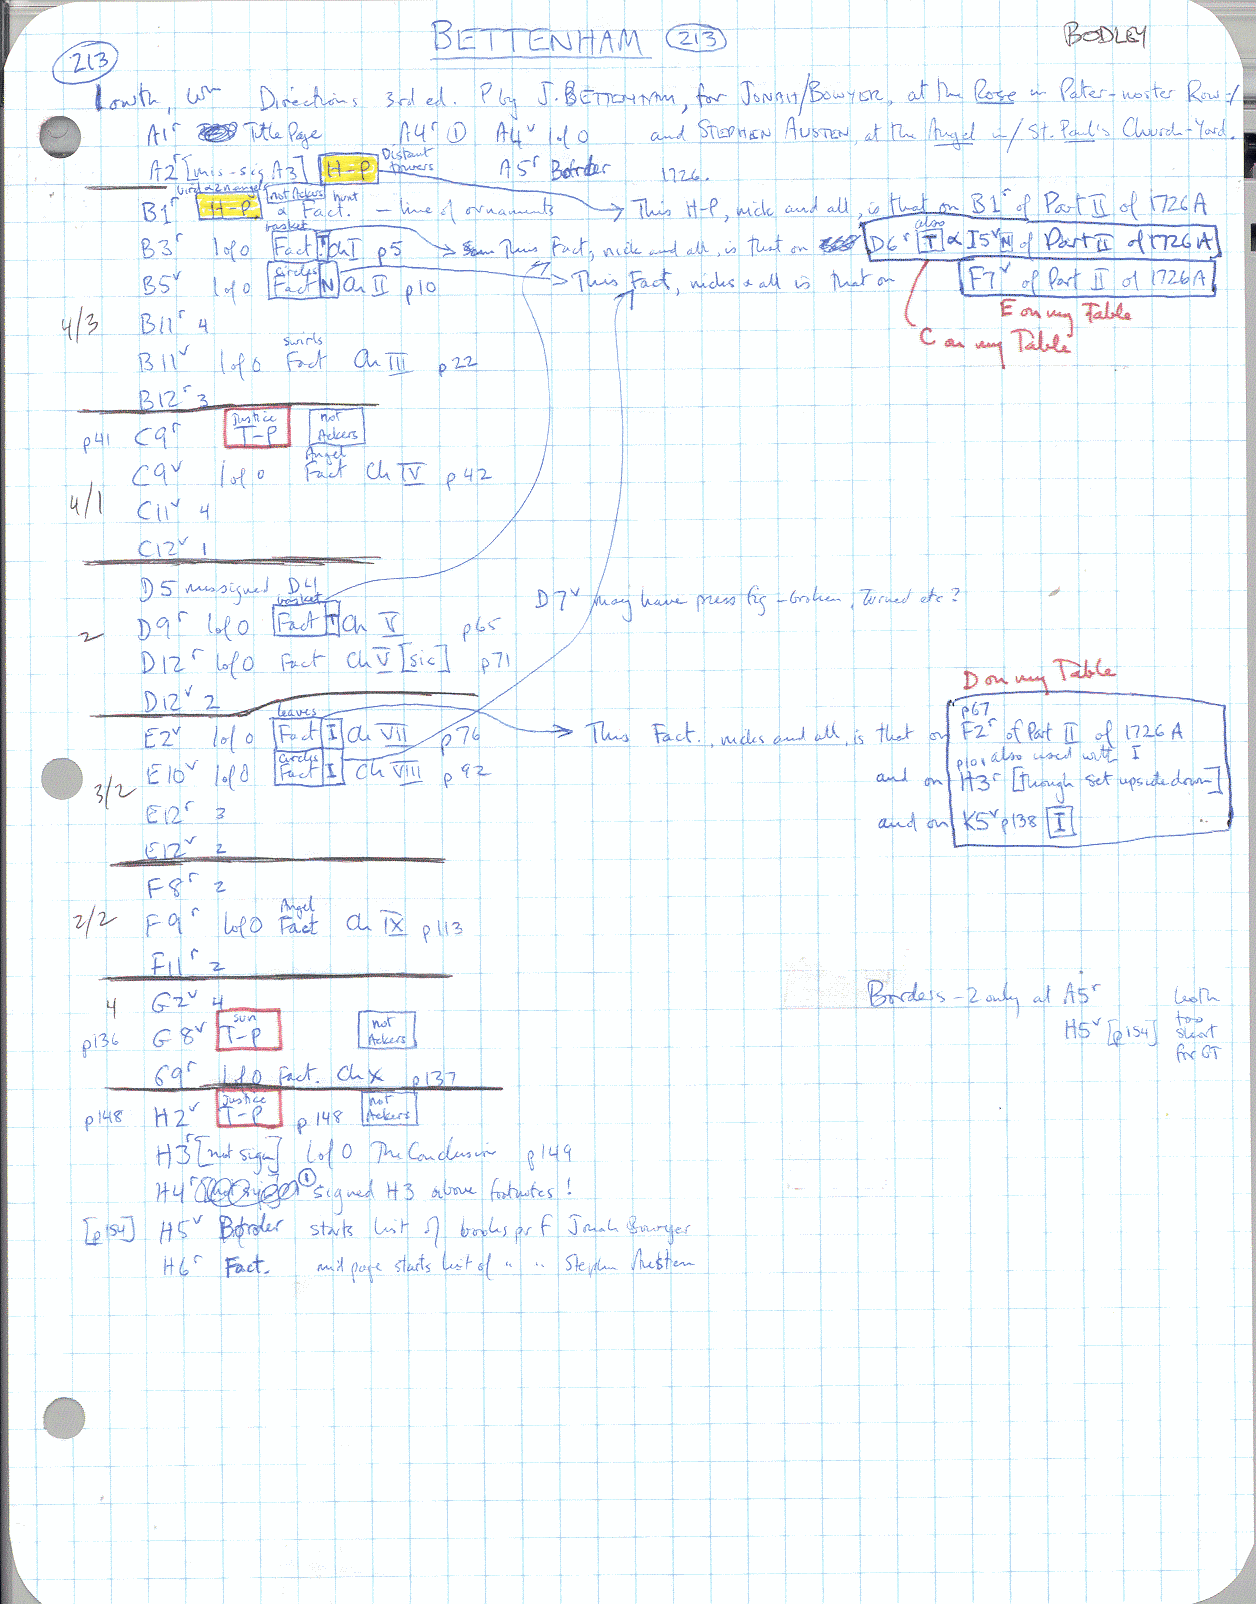 BETTENHAM 213
BODLEY
213
Lowth, Wm Directions 3rd ed. P by J. BETTENHAM, for JONAH/BOWYER, at the Rose in Pater-noster Row-/
A1r Title Page A4r ① A4v 1 of 0 and STEPHEN AUSTEN, at the Angel in/St. Paul's Church-Yard.
A2r [mis-sig A3] H-P Distant towers A5r Border 1726.
bird & 2 angels not Ackers hunt
B1r H-P & Fact. - line of ornaments → This H-P, nick and all, is that on B1r of Part II of 1726A
basket also
B3r 1 of 0 Fact T Ch I p5 → This Fact, nicks and all, is that on D6r T & I5v N of Part II of 1726A
circles
B5v 1 of 0 Fact N Ch II p10 → This Fact, nicks & all is that on F7v of Part II of 1726A
E on my Table
C on my Table
4/3 B11r 4
swirls
B11v 1 of 0 Fact Ch III p22
B12r 3
p41 C9r Justice T-P not Ackers
Angel
C9v 1 of 0 Fact Ch IV p42
4/1 C11v 4
C12v 1
D5 missigned D4
basket
D7v may have press fig - broken, turned etc?
2 D9r 1 of 0 Fact T Ch V p65
D12r 1 of 0 Fact Ch V [sic] p71
D on my Table
D12v 2
leaves p67
E2v 1 of 0 Fact I Ch VII p76 → This Fact., nicks and all, is that on F2r of Part II of 1726A
circles p101 also used with I
E10v 1 of 0 Fact I Ch VIII p92 and on H3r [though set upside down]
3/2 E12r 3 and on K5v p138 I
E12v 2
F8r 2
Angel
2/2 F9r 1 of 0 Fact Ch IX p113
F11r 2
4 G2v 4
Borders - 2 only at A5r both too short for GT
H5v [p154]
p136 G8v sun T-P not Ackers
G9r 1 of 0 Fact. Ch X p137
p148 H2v Justice T-P p148 not Ackers
H3r [not sign] 1 of 0 The Conclusion p149
H4r ① signed H3 above footnotes!
[p154] H5v Border starts list of books pr f Jonah Bowyer
H6r Fact. mid page starts list of " " Stephen Austen